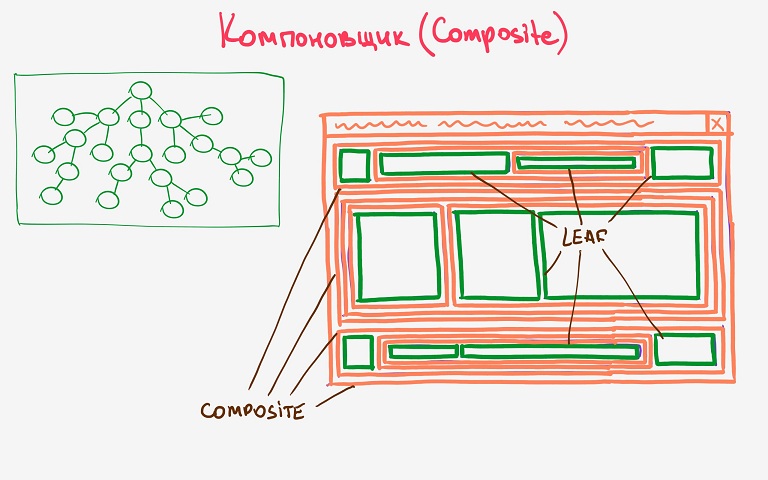 Компоновщик (Composite)
X
LEAF
COMPOSITE